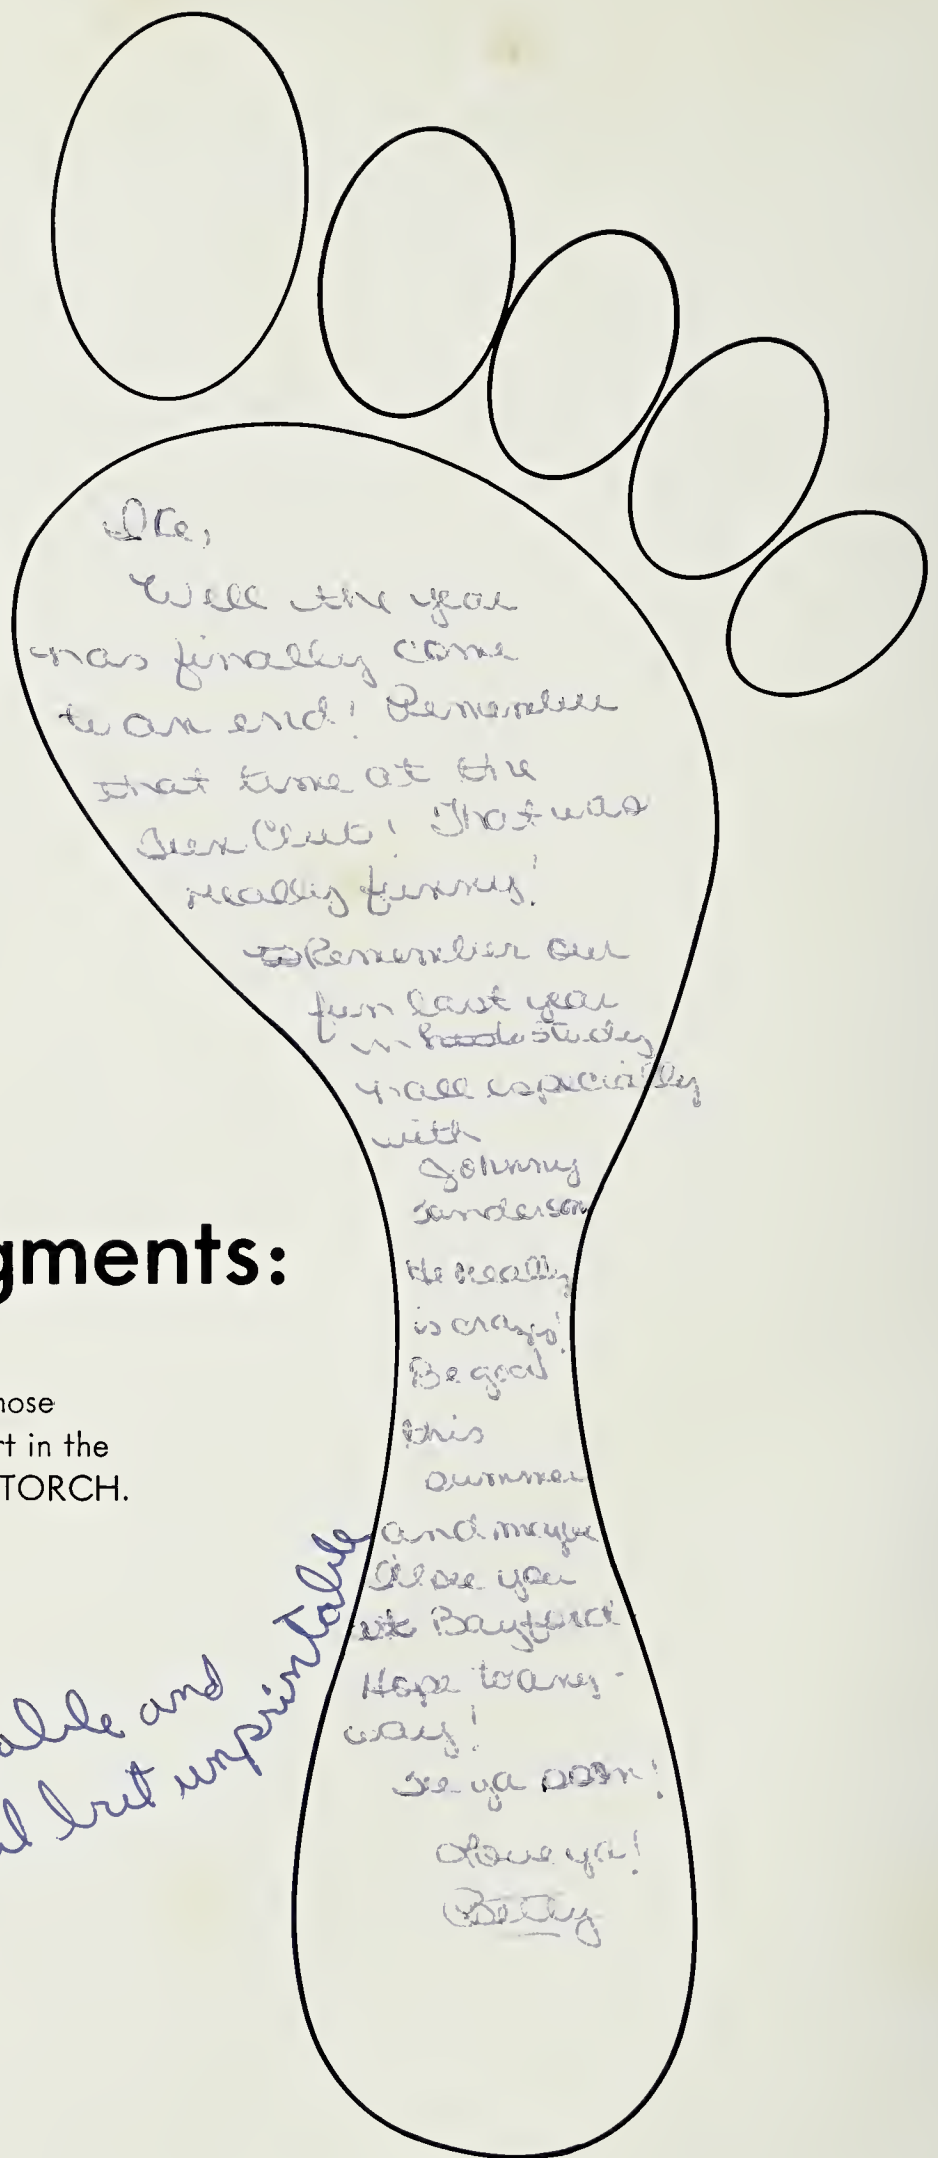 Ike,
Well the year
has finally come
to an end! Remember
that time at the
Teen Club! That was
really funny!
Remember our
fun last year
in study
hall especially
with
Johnny
Sanderson
He really
is crazy!
Be good
this
summer
and maybe
I'll see you
at
Hope to any-
way!
See ya soon!
Love ya!
Betty
gments:
hose
rt in the
TORCH.
able and
but unprintable